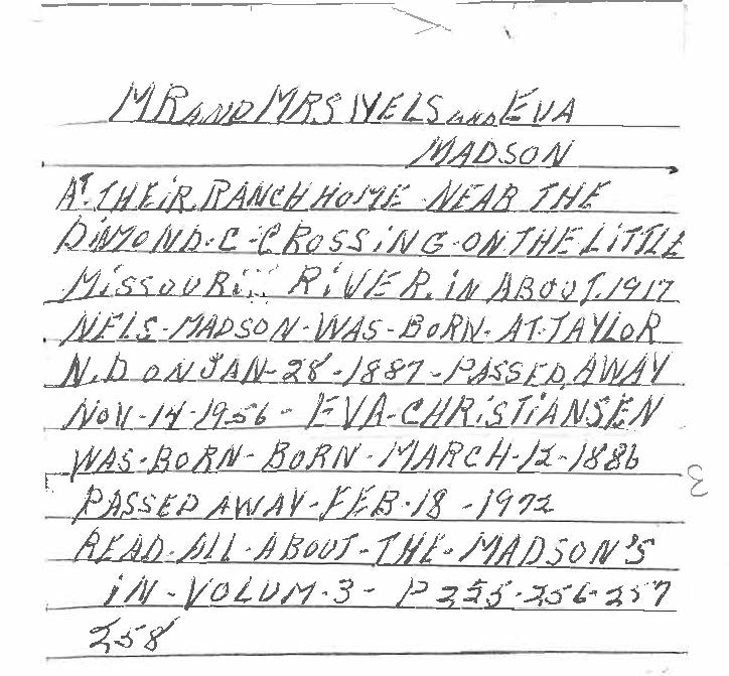 MR AND MRS NELS AND EVA
MADSON
AT THEIR RANCH HOME NEAR THE
DIMOND-C-CROSSING-ON THE LITTLE
MISSOURI RIVER. IN ABOUT. 1917
NELS-MADSON-WAS-BORN-AT-TAYLOR
N.D ON JAN-28-1887-PASSED AWAY
NOV-14-1956-EVA-CHRISTIANSEN
WAS-BORN-BORN-MARCH-12-1886
PASSED AWAY-FEB-18-1972
READ-ALL-ABOUT-THE-MADSON'S
IN-VOLUM-3-P 255-256-257
258
3